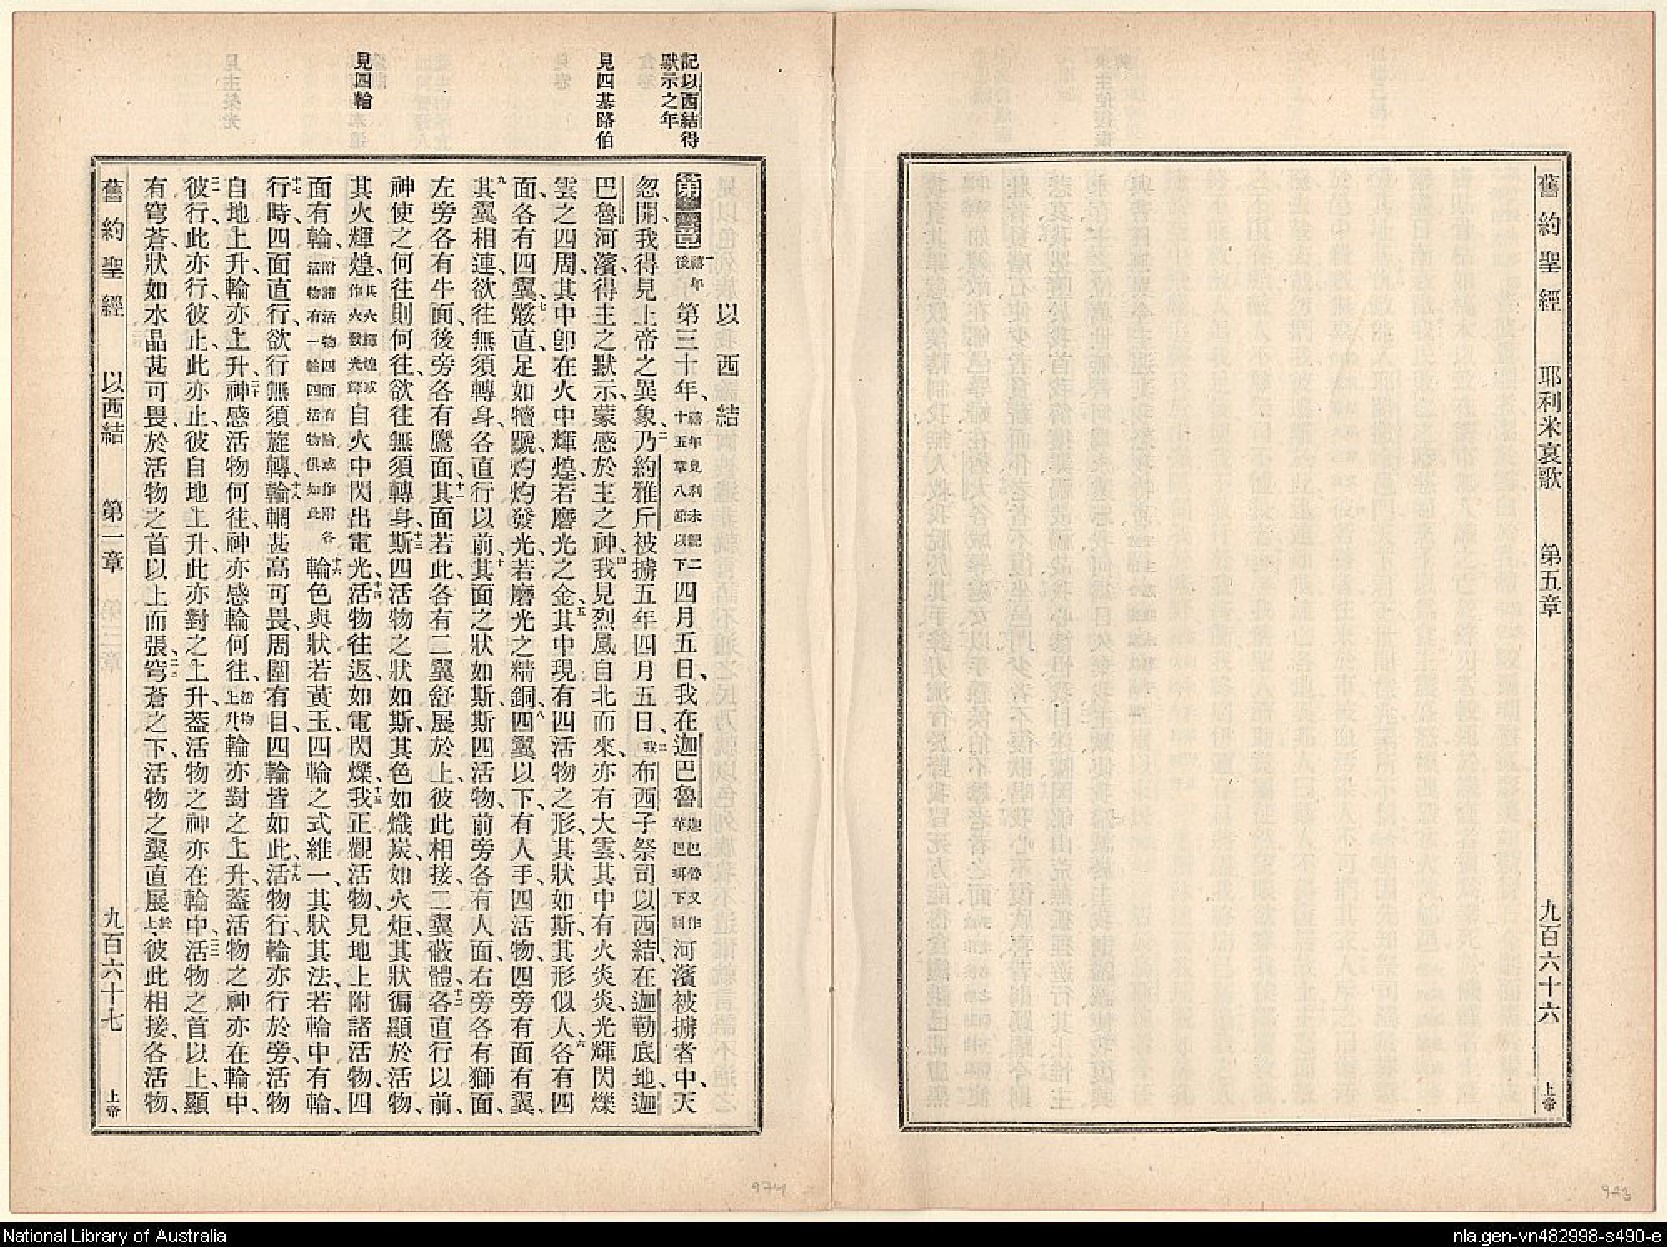 舊約聖經 耶利米哀歌 第五章 九百六十六 上帝
923
記以西結得
默示之年
見四基路伯
見四輪
以西結
第一章
一禧年後第三十年、禧年見利未記二十五章八節以下四月五日、我在迦巴魯迦巴魯又作華巴珥下同河濱被擄者中、天
忽開、我得見上帝之異象、二乃約雅斤被擄五年四月五日、三我布西子祭司以西結、在迦勒底地迦
巴魯河濱、得主之默示、蒙感於主之神、四我見烈風自北而來、亦有大雲、其中有火炎炎、光輝閃爍
雲之四周、其中卽在火中輝煌、若磨光之金、五其中現有四活物之形、其狀如斯、其形似人、六各有四
面、各有四翼、七骸直、足如犢蹏、灼灼發光、若磨光之精銅、八四翼以下有人手、四活物四旁有面有翼、
九其翼相連、欲往無須轉身、各直行以前、十其面之狀如斯、斯四活物、前旁各有人面、右旁各有獅面、
左旁各有牛面、後旁各有鷹面、十一其面若此、各有二翼舒展於上、彼此相接、二翼蔽體、十二各直行以前、
神使之何往則何往、欲往無須轉身、十三斯四活物之狀如斯、其色如熾炭、如火炬、其狀徧顯於活物、
其火輝煌、其火輝煌或作火發光輝自火中閃出電光、十四活物往返如電閃爍、十五我正觀活物、見地上附諸活物、四
面有輪、附諸活物四面有輪或作附各活物有一輪四活物俱如此十六輪色與狀若黃玉、四輪之式維一、其狀其法、若輪中有輪、
十七行時四面直行、欲行無須旋轉、十八輪輞甚高可畏、周圍有目、四輪皆如此、十九活物行、輪亦行於旁、活物
自地上升、輪亦上升、二十神感活物何往、神亦感輪何往、活物上升輪亦對之上升、蓋活物之神亦在輪中、
二一彼行此亦行、彼止此亦止、彼自地上升、此亦對之上升、蓋活物之神亦在輪中、二二活物之首以上、顯
有穹蒼、狀如水晶、甚可畏、於活物之首以上而張、二三穹蒼之下、活物之翼直展、彼此相接、各活物、
舊約聖經 以西結 第一章 九百六十七 上帝
974
National Library of Australia
nla.gen-vn482998-s490-e